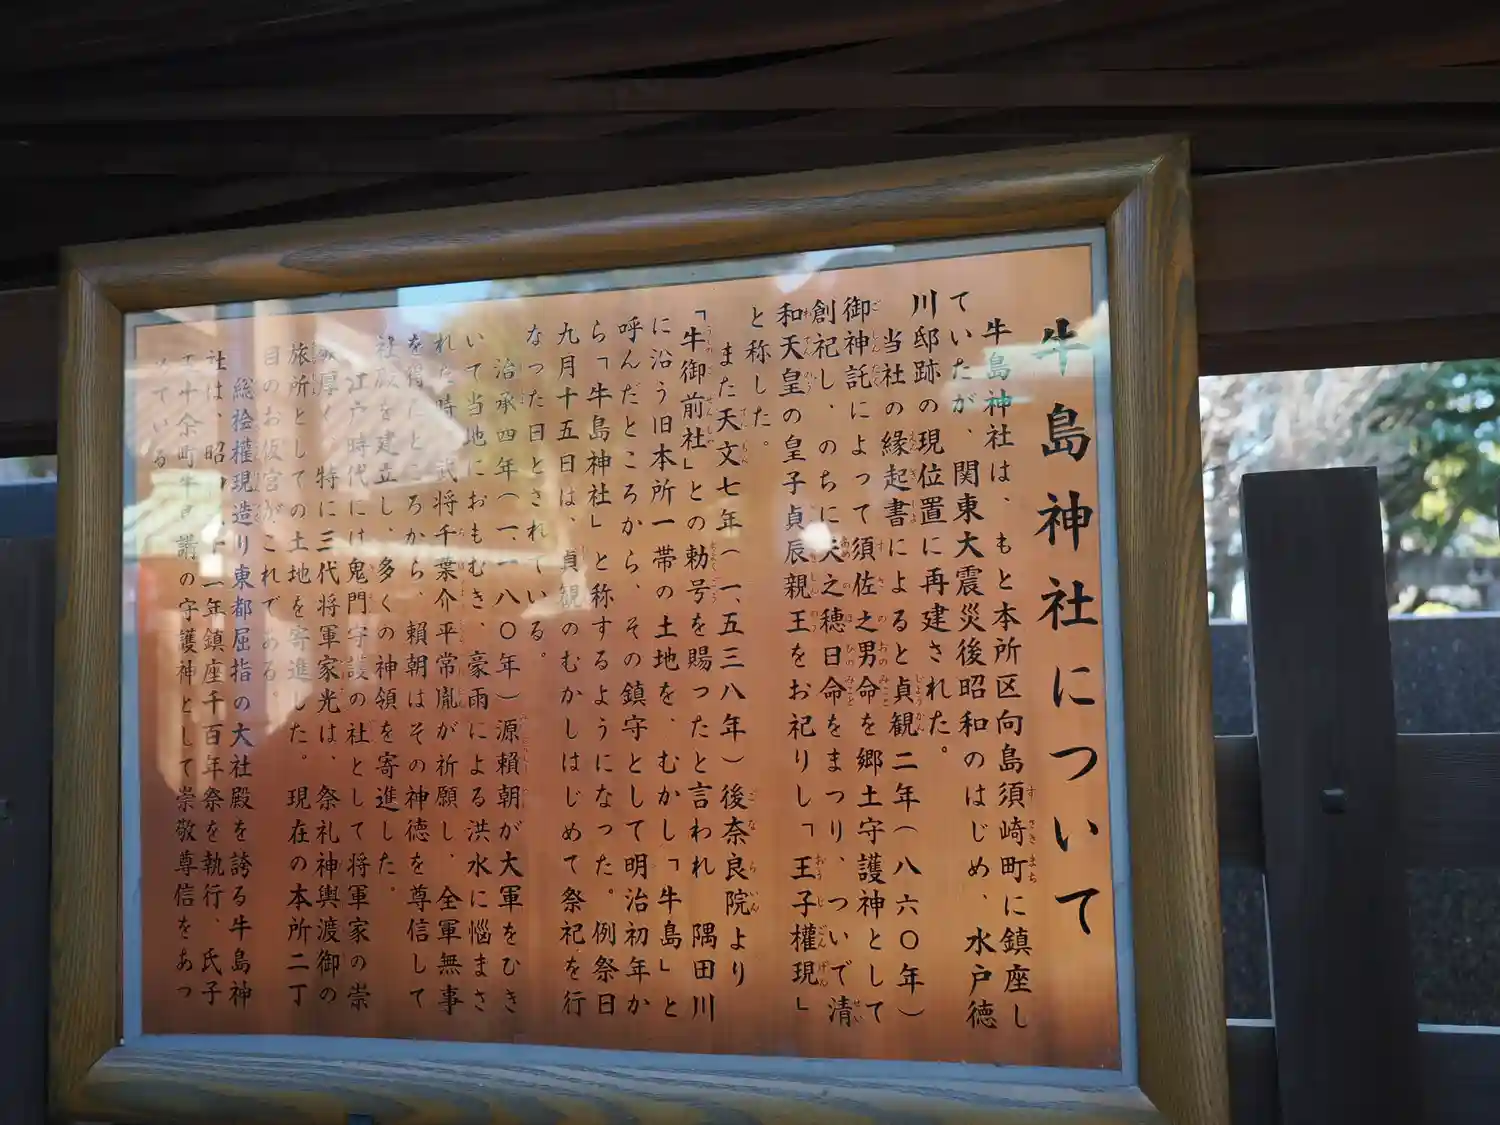 牛島神社について
牛島神社は、もと本所区向島須崎町に鎮座し
ていたが、関東大震災後昭和のはじめ、水戸徳
川邸跡の現位置に再建された。
当社の縁起書によると貞観二年(八六〇年)
御神託によって須佐之男命を郷土守護神として
創祀し、のちに天之穂日命をまつり、ついで清
和天皇の皇子貞辰親王をお祀りし「王子權現」
と称した。
また天文七年(一、五三八年)後奈良院より
「牛御前社」との勅号を賜ったと言われ 隅田川
に沿う旧本所一帯の土地を、むかし「牛島」と
呼んだところから、その鎮守として明治初年か
ら「牛島神社」と称するようになった。例祭日
九月十五日は、貞観のむかしはじめて祭祀を行
なった日とされている。
治承四年(一、一八〇年)源頼朝が大軍をひき
いて当地におもむき、豪雨による洪水に悩まさ
れた時、武将千葉介平常胤が祈願し、全軍無事
を得たところから、頼朝はその神徳を尊信して
社殿を建立し、多くの神領を寄進した。
江戸時代には鬼門守護の社として将軍家の崇
厚く、特に三代将軍家光は、祭礼神輿渡御の
旅所としての土地を寄進した。現在の本所二丁
目のお仮宮がこれである。
総桧權現造り東都屈指の大社殿を誇る牛島神
社は、昭 二年鎮座千百年祭を執行、氏子
十余町牛島講の守護神として崇敬尊信をあつ
めている